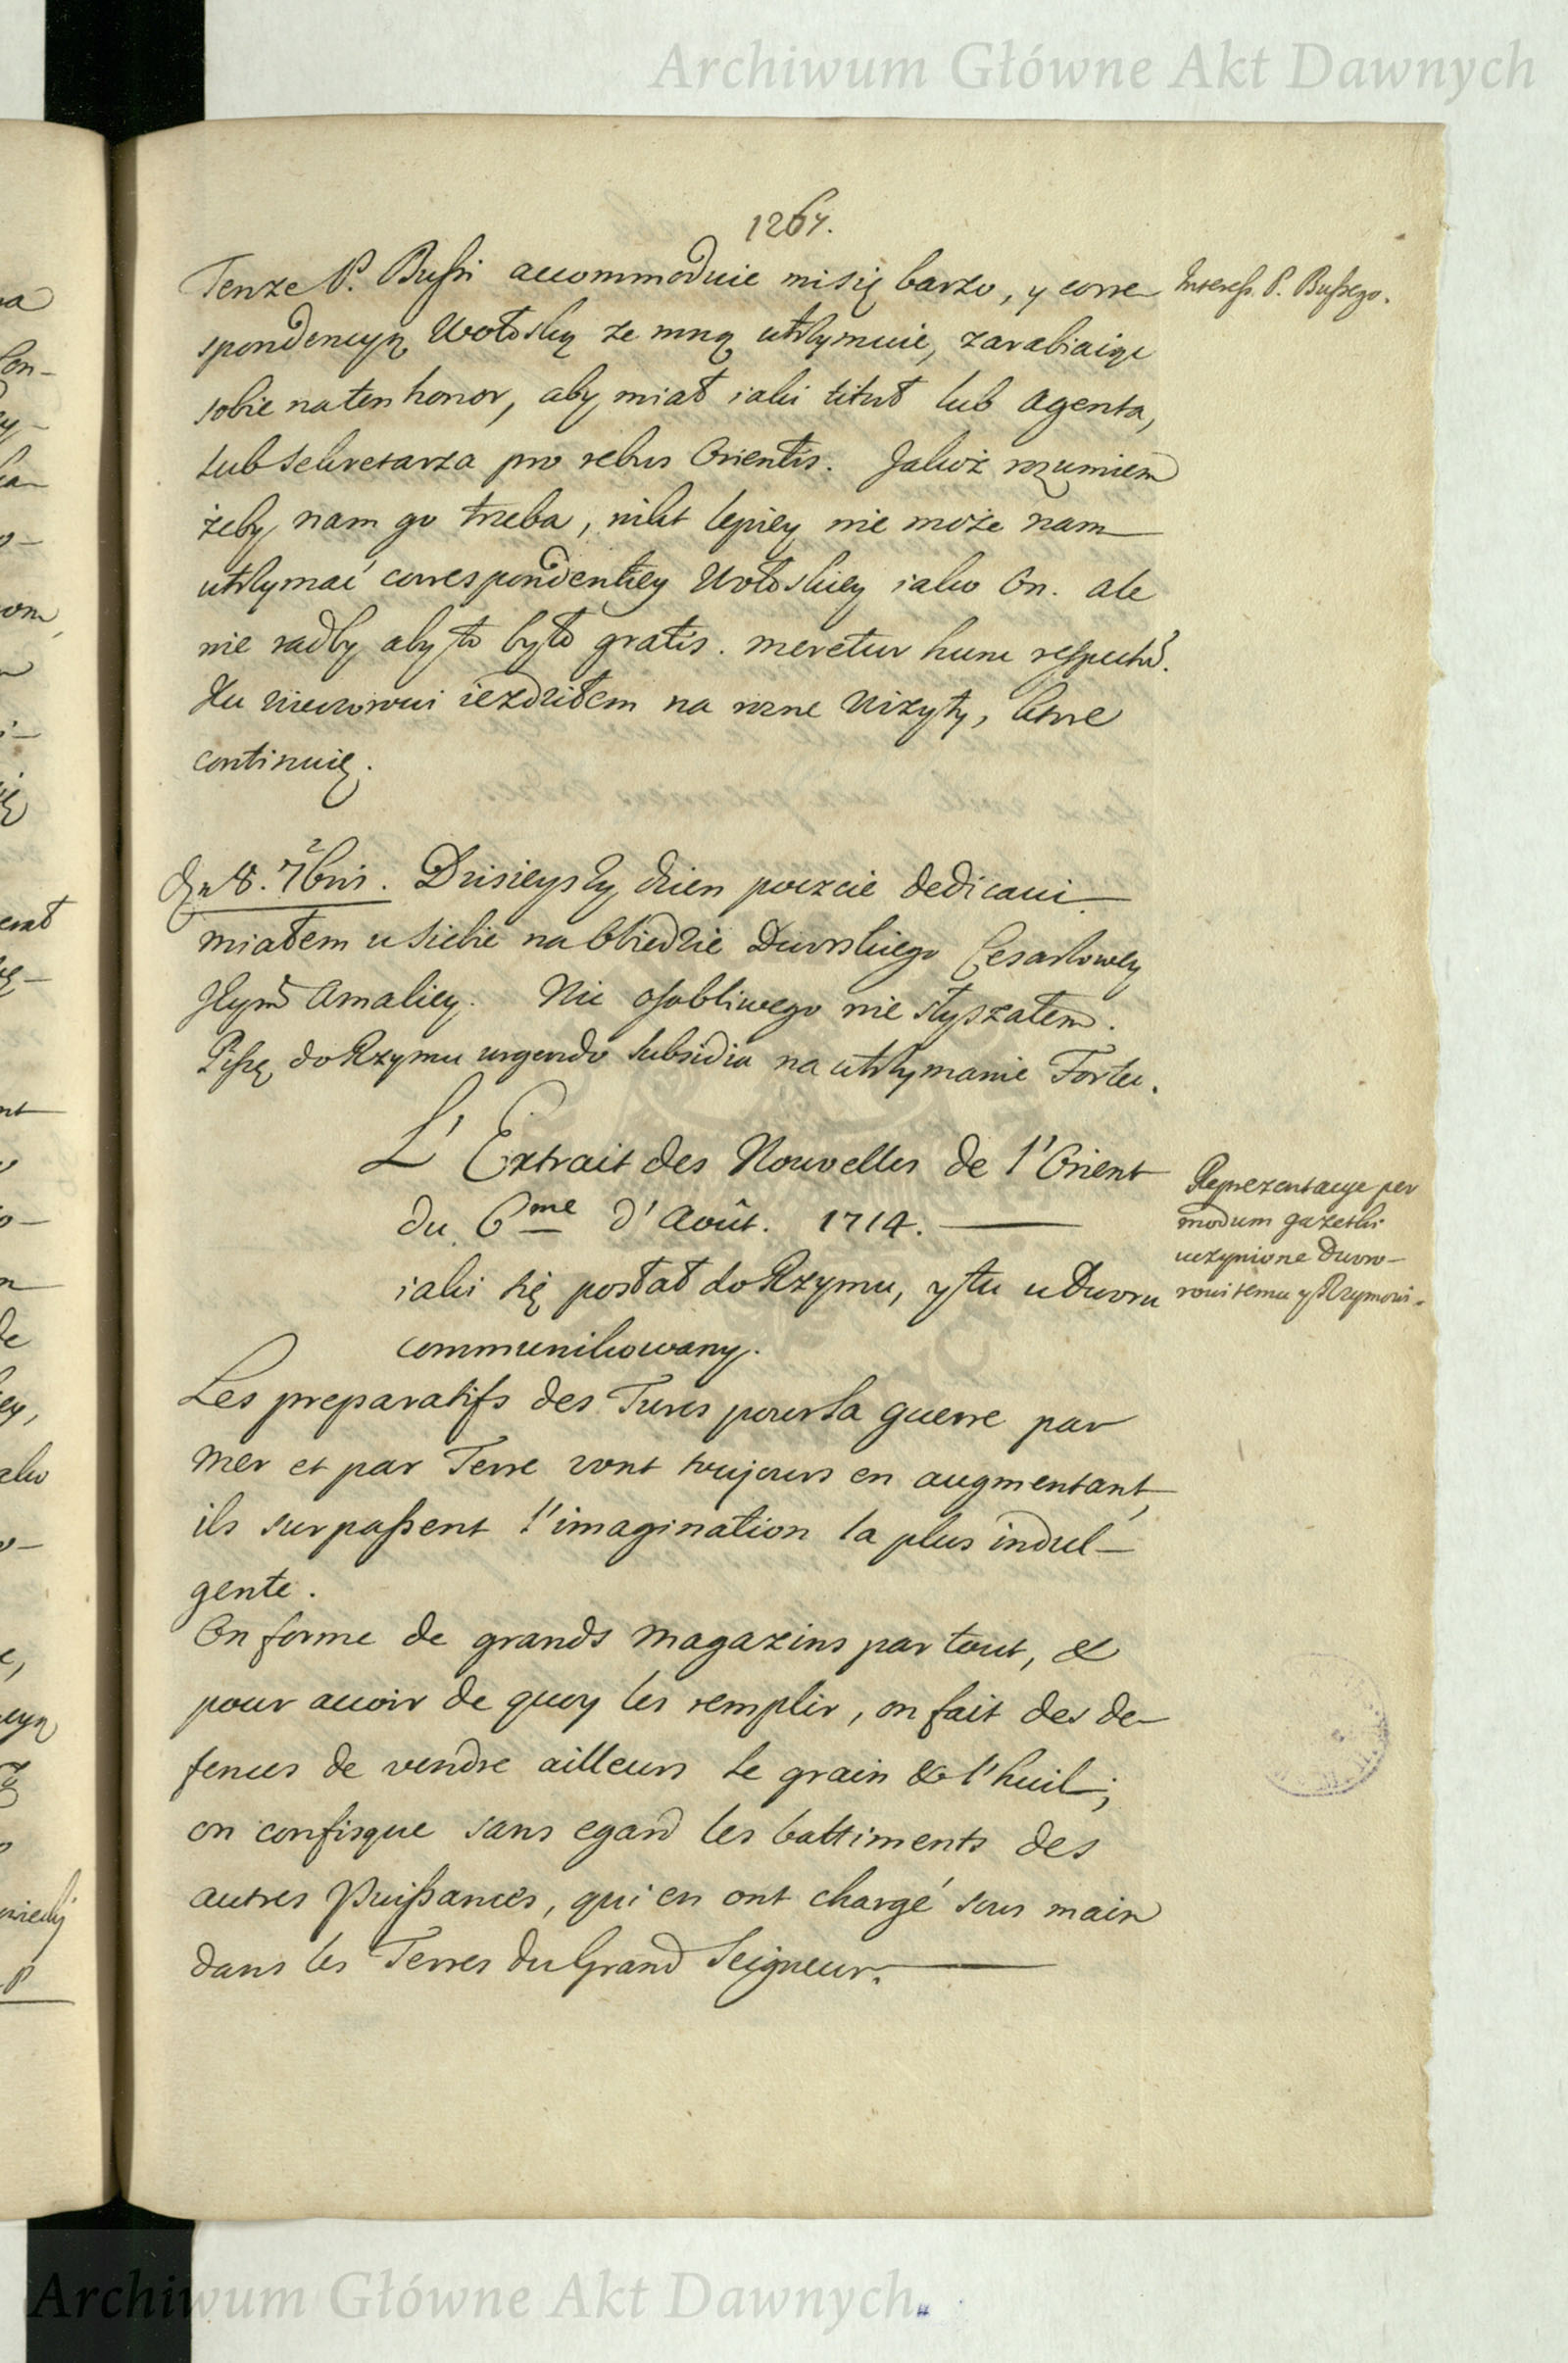 Archiwum Główne Akt Dawnych
1267.
Tenze P. Bussi accommoduie misię barzo, y corre
Interess. P. Bussego.
spondencyą Wołoską ze mną utrzymuie, zarabiaiąc
sobie na ten honor, aby miał iaki tituł lub Agenta,
lub Sekretarza pro rebus Orientis. Jakoż rozumiem
żeby nam go trzeba, nikt lepiey nie może nam
utrzymać correspondentiey Wołoskiey iako On. ale
nie radby aby to było gratis. meretur hunc respectũ.
Ku wieczorowi iezdziłem na rozne Wizyty, ktore
continuię.
Dn 8. 7bris. Dzisieyszy dzien poczcie dedicavi
miałem u siebie na Obiedzie Dworskiego Cesarzowey
Jeymć Amaliey. Nic osobliwego nie słyszałem.
Piszę do Rzymu urgendo subsidia na utrzymanie Fortec.
L' Extrait des Nouvelles de l'Orient
du 6me d'Août. 1714.
iaki się posłał do Rzymu, y tu u Dworu
communikowany.
Reprezentacye per
modum gazetki
uczynione Dwo-
rowi temu y Rzymowi.
Les preparatifs des Turcs pour la guerre par
mer et par Terre vont toujours en augmentant,
ils surpassent l'imagination la plus indul-
gente.
On forme de grands magazins par tout, &
pour avoir de quoy les remplir, on fait des de-
fences de vendre ailleurs le grain & l'huil;
on confisque sans egard les battiments des
autres Puissances, qui en ont chargé sous main
dans les Terres du Grand Seigneur.
Archiwum Główne Akt Dawnych